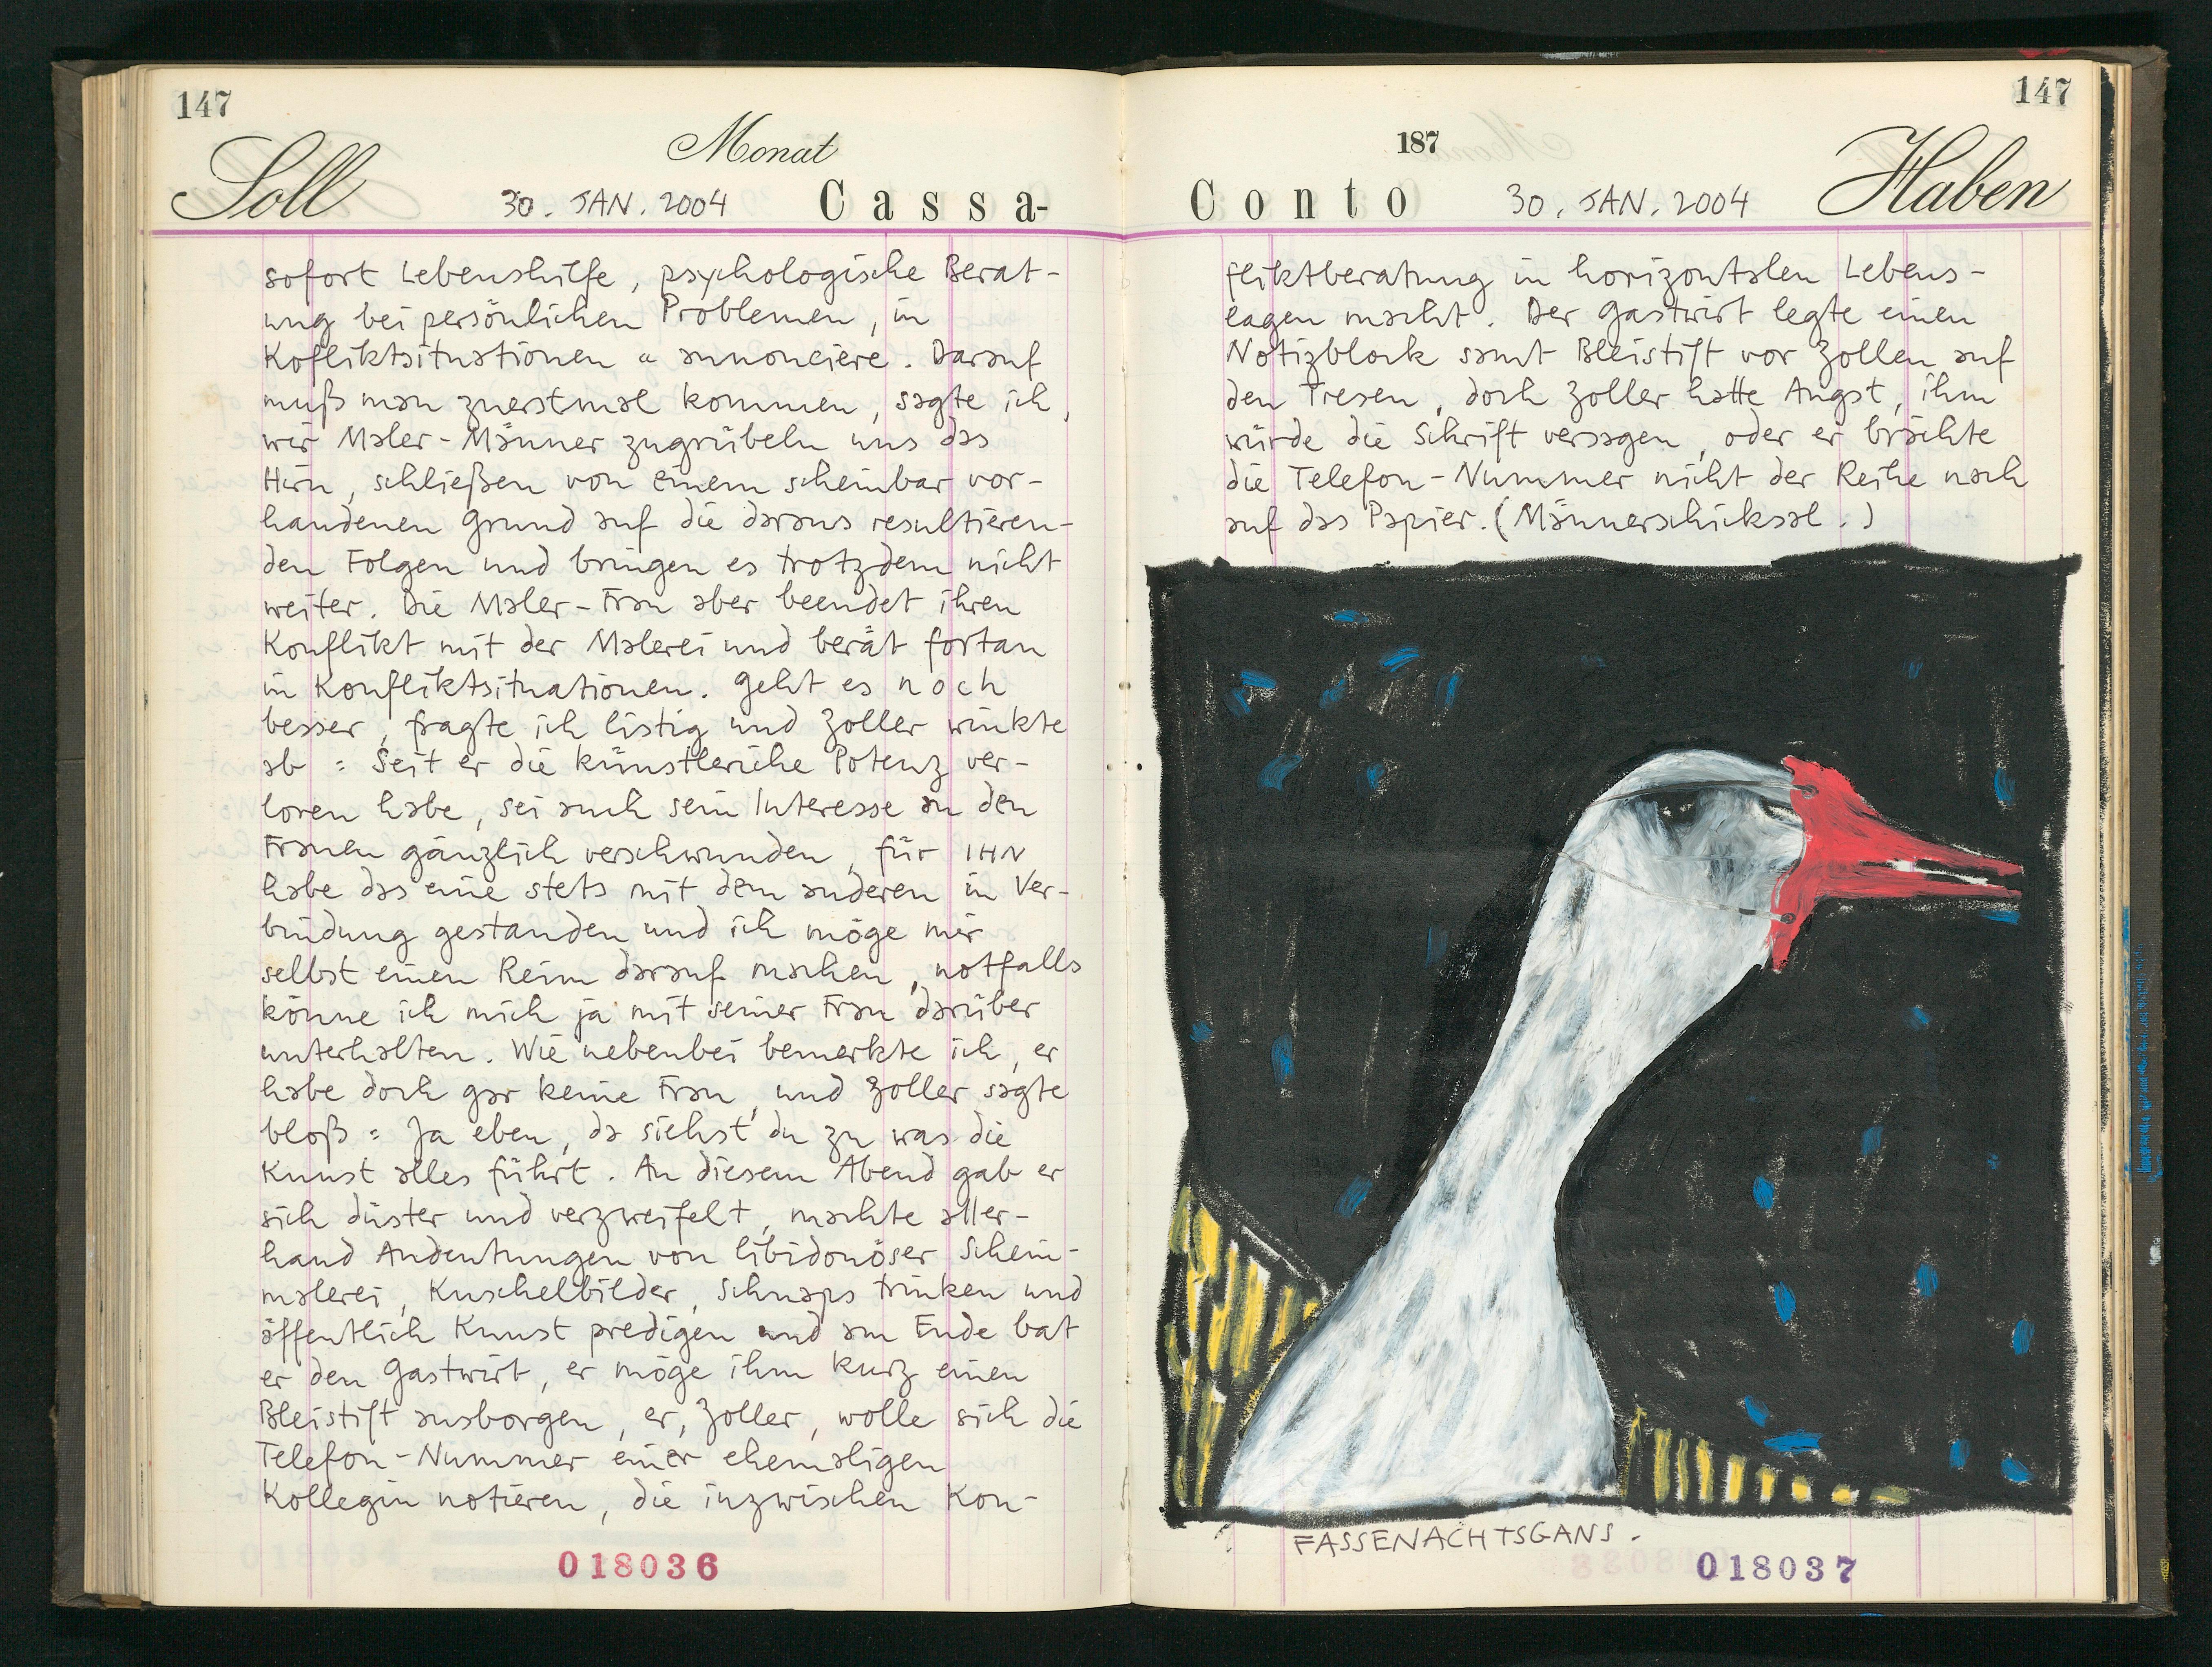 147
Soll
Monat
30. JAN. 2004
Cassa-
sofort Lebenshilfe, psychologische Berat-
ung bei persönlichen Problemen, in
Kofliktsituationen " annonciere. Darauf
muß man zuerstmal kommen, sagte ich,
wir Maler-Männer zugrübeln uns das
Hirn, schließen von einem scheinbar vor-
handenen Grund auf die daraus resultieren-
den Folgen und bringen es trotzdem nicht
weiter. Die Maler-Frau aber beendet ihren
Konflikt mit der Malerei und berät fortan
in Konfliktsituationen. Geht es noch
besser, fragte ich listig und Zoller winkte
ab : Seit er die künstleriche Potenz ver-
loren habe, sei auch sein Interesse an den
Frauen gänzlich verschwunden, für IHN
habe das eine stets mit dem anderen in Ver-
bindung gestanden und ich möge mir
selbst einen Reim darauf machen, notfalls
könne ich mich ja mit seiner Frau darüber
unterhalten. Wie nebenbei bemerkte ich, er
habe doch gar keine Frau, und Zoller sagte
bloß : Ja eben, da siehst du zu was die
Kunst alles führt. An diesem Abend gab er
sich düster und verzweifelt, machte aller-
hand Andeutungen von libidonöser Schein-
malerei, Kuschelbilder, Schnaps trinken und
öffentlich Kunst predigen und am Ende bat
er den Gastwirt, er möge ihm kurz einen
Bleistift ausborgen, er, Zoller, wolle sich die
Telefon-Nummer einer ehemaligen
Kollegin notieren, die inzwischen Kon-
018036
147
187
Conto
30. JAN. 2004
Haben
fliktberatung in horizontalen Lebens-
lagen macht. Der Gastwirt legte einen
Notizblock samt Bleistift vor Zoller auf
den Tresen, doch Zoller hatte Angst, ihm
würde die Schrift versagen, oder er brächte
die Telefon-Nummer nicht der Reihe nach
auf das Papier. (Männerschicksal.)
FASSENACHTSGANS.
018037